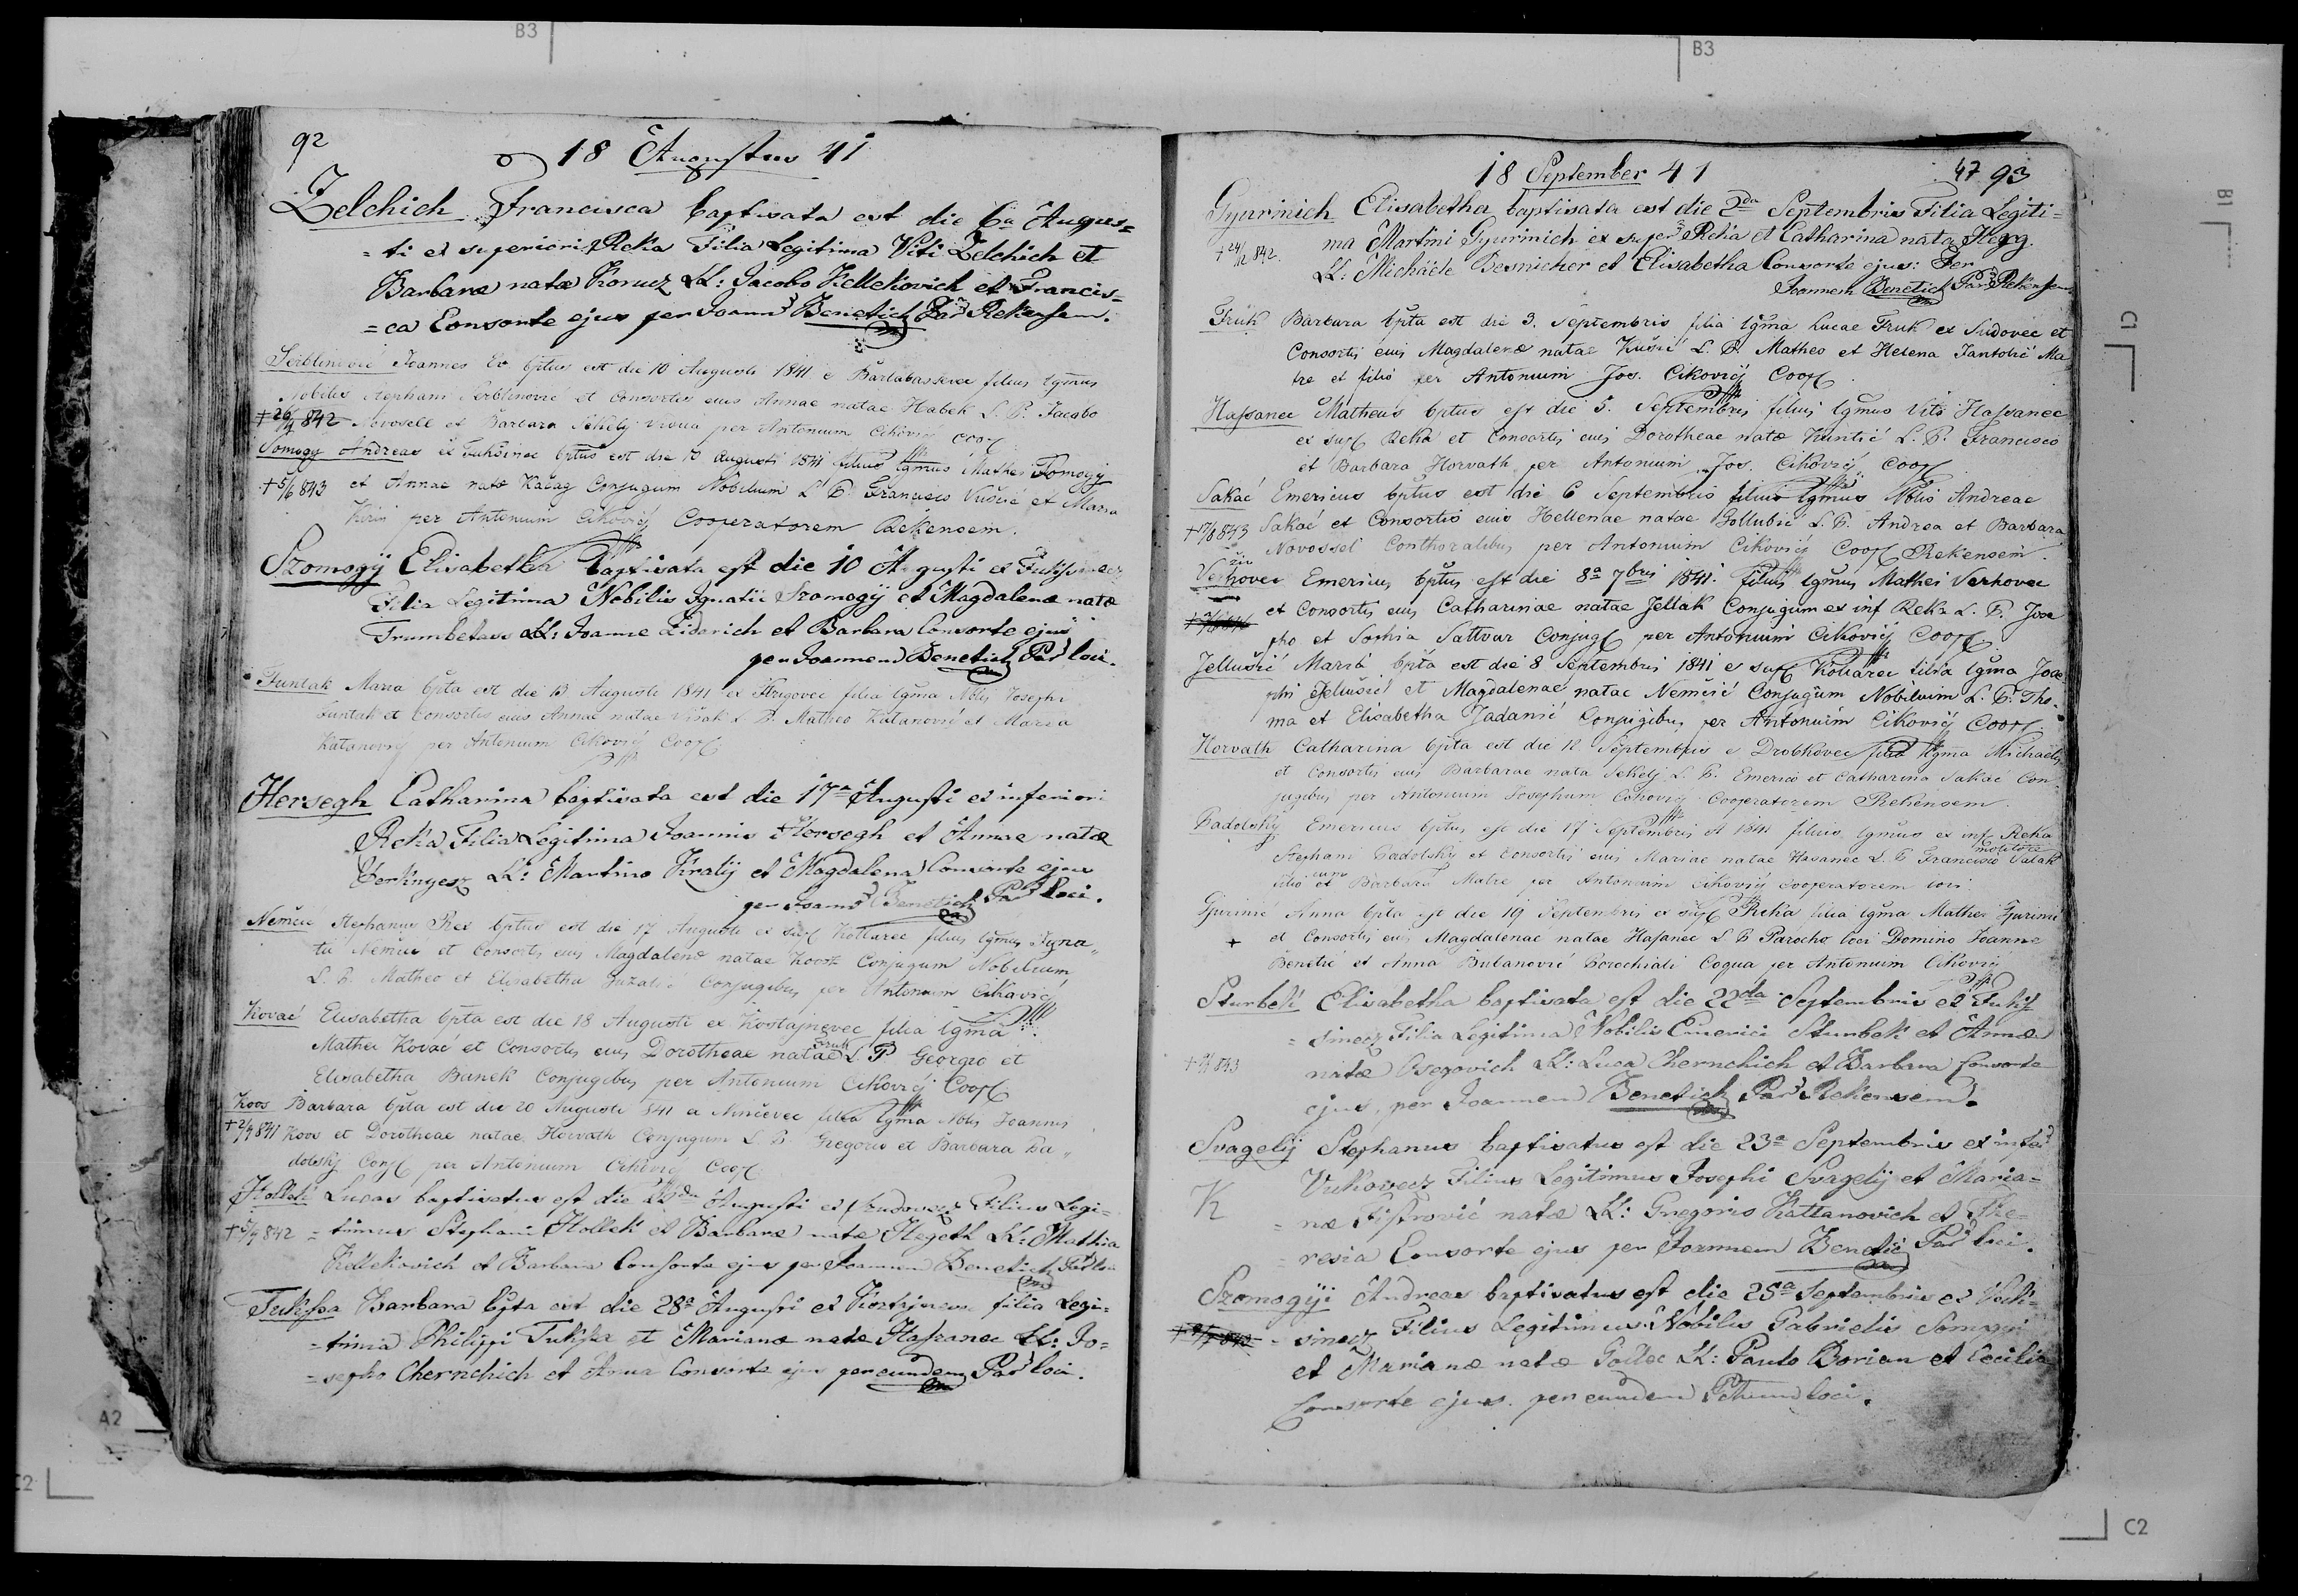 B3
B3
B1
C1
A2
C2
C2
92
18 Augustus 41
Zelchich Francisca baptisata est die 6a Augus=
=ti ex superiori Reka Filia Legitima Viti Zelchich et
Barbaræ natæ Korucz LL: Jacobo Kellekovich et Francis=
=ca Consorte ejus per Joann Benetich Par Rekensem.
Serblinović Joannes bptus est die 10 Augusti 1841 e Barlabassevec filius lgmus
Nobilis Stephani Serblinović et Consortis eius Annae natae Habek L. P. Jacobo
+ 26/4 842 Novosell et Barbara Sekely vidua per Antonium Ciković Coop
Somogy Andreas ex Tuhsinec bptus est die 10 Augusti 1841 filius lgmus Mathei Somogy
+ 5/6 843 et Annae natæ Kačag Conjugum Nobilium L. P. Francisco Vučić et Maria
per Antonium Ciković Cooperatorem Rekensem.
Szomogÿ Elisabetha Baptisata est die 10 Augusti ex
Filia Legitima Nobilis Ignatii Szomogÿ et Magdalenæ natæ
Trumbetass LL: Joanne Ziderich et Barbara Consorte ejus
per Joannem Benetich Par loci.
Funtak Maria bpta est die 13 Augusti 1841 ex Krigovec filia lgma Nblis Josephi
Funtak et Consortis eius Annae natae Višak L. P. Matheo Katanović et Maria
Katanović per Antonium Ciković Coop
Hersegh Catharina baptisata est die 17a Augusti ex inferiori
Reka Filia Legitima Joannis Hersegh et Annae natæ
LL: Martino Kralÿ et Magdalena Consorte ejus
per Joann Benetich Par loci.
Nemčić Stephanus Rex bptus est die 17 Augusti ex sup Kottarec filius lgmus Igna„
tii Nemčić et Consortis eius Magdalenæ natae Conjugum Nobilium
L. P. Matheo et Elisabetha Conjugibus per Antonium Ciković
Kovač Elisabetha bpta est die 18 Augusti ex Kostajnevec filia lgma
Mathei Kovač et Consortis eius Dorotheae natae Fruk L. P. Georgio et
Elisabetha Bunek Conjugibus per Antonium Ciković Coop
Koos Barbara bpta est die 20 Augusti 841 e filia lgma Nblis Joannis
+ 2/9 841 Koos et Dorotheae natae Horvath Conjugum L. P. Gregorio et Barbara Ra„
dolsky Conj per Antonium Ciković Coop
Hollek Lucas baptisatus est die Augusti ex Szudovecz Filius Legi=
842 =timus Stephani Hollek et Barbaræ natæ Hegeth LL: Mathia
Kellekovich et Barbara Consorte ejus per Joannem Benetich Par loci
Tukssa Barbara bpta est die 28a Augusti ex filia Legi=
=tima Philippi Tukssa et Marianæ natæ Hassanec LL: Jo=
=sepho Chernchich et Anna Consorte ejus per eundem Par loci.
18 September 41
47 93
Gyurinich Elisabetha baptisata est die 2da Septembris Filia Legiti=
+ 24/12 842. ma Martini Gyurinich ex super Reka et Catharina nata Hegg.
LL: Michaele Besnicher et Elisabetha Consorte ejus: Per
Joannem Benetich Par Rekensem
Fruk Barbara bpta est die 3. Septembris filia lgma Lucae Fruk ex Sudovec et
Consortis eius Magdalenæ natae Kušić L. P. Matheo et Helena Jantolić Ma
tre et filio per Antonium Jos. Ciković Coop
Hassanec Matheus bptus est die 5. Septembris filius lgmus Viti Hassanec
ex sup Reka et Consortis eius Dorotheae natæ Kuntić L. P. Francisco
et Barbara Horvath per Antonium Jos. Ciković Coop
Sakać Emericus bptus est die 6 Septembris filius lgmus Nblis Andreae
+ 17/8 843 Sakać et Consortis eius Hellenae natae Gollubić L. P. Andrea et Barbara
Novossel Conthoralibus per Antonium Ciković Coop Rekensem.
Verhovec Emericus bptus est die 8a 7bris 1841. filius lgmus Mathei Verhovec
et Consortis eius Catharinae natae Jellak Conjugum ex inf Reka L. P. Jose
pho et Sophia Sattvar Conjug per Antonium Ciković Coop
Jellušić Maria bpta est die 8 Septembris 1841 e sup Kottarec filia lgma Jose
phi Jellušić et Magdalenae natae Nemčić Conjugum Nobilium L. P. Tho„
ma et Elisabetha Jadanić Conjugibus per Antonium Ciković Coop
Horvath Catharina bpta est die 12 Septembris e Drobkovec filia lgma Michaelis
et Consortis eius Barbarae nata Sekely L. P. Emerico et Catharina Sakać Con
jugibus per Antonium Josephum Ciković Cooperatorem Rekensem.
Radolsky Emericus bptus est die 17 Septembris A 1841 filius lgmus ex inf Reka
Stephani Radolsky et Consortis eius Mariae natae Hasanec L. P. Francisco molitore
filio cum et Barbara Matre per Antonium Ciković Cooperatorem loci
Gjurinić Anna bpta est die 19 Septembris ex sup Reka filia lgma Mathei Gjurinić
+ et Consortis eius Magdalenae natae Hasanec L. P. Parocho loci Domino Joanne
Benetić et Anna Bubanović Parochiali Coqua per Antonium Ciković
Sturbek Elisabetha baptisata est die 22da Septembris ex Tukss=
=sinecz Filia Legitima Nobilis Emerici Sturbek et Annæ
843 natæ Osegovich LL: Luca Chernchich et Barbara Consorte
ejus, per Joannem Benetich Par Rekensem.
Svagelÿ Stephanus baptisatus est die 23a Septembris ex infer
Vukovecz Filius Legitimus Josephi Svagelÿ et Maria=
K =næ Fistrović natæ LL: Gregorio Kattanovich et The=
=resia Consorte ejus per Joannem Benetić Par loci.
Szomogÿi Andreas baptisatus est die 25a Septembris ex
=sinecz Filius Legitimus Nobilis Gabrielis Somogyi
et Marianæ natæ Gollec LL: Paulo Borian et Cecilia
Consorte ejus. per eundem loci.